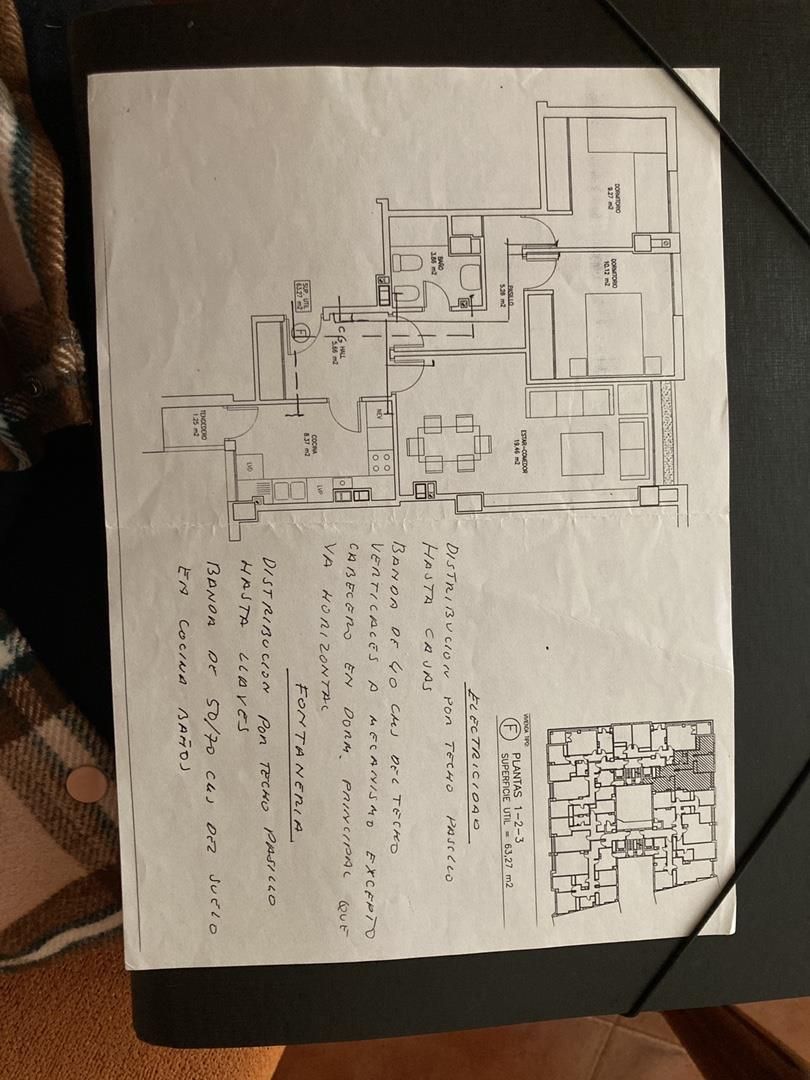 DORMITORIO
9.27 m2
DORMITORIO
10.12 m2
BAÑO
3.66 m2
PASILLO
5.28 m2
SUP. UTIL
63.27 m2
F
CG
HALL
5.66 m2
ESTAR-COMEDOR
19.46 m2
NEV
COCINA
8.37 m2
LVP
TENDEDERO
1.25 m2
VIVIENDA TIPO
F
PLANTAS 1-2-3
SUPERFICIE UTIL = 63,27 m2
ELECTRICIDAD
DISTRIBUCION POR TECHO PASILLO
HASTA CAJAS
BANDA DE 40 CMS DEL TECHO
VERTICALES A MECANISMO EXCEPTO
CABECERO EN DORM. PRINCIPAL QUE
VA HORIZONTAL
FONTANERIA
DISTRIBUCION POR TECHO PASILLO
HASTA LLAVES
BANDA DE 50/70 CMS DEL SUELO
EN COCINA BAÑOS